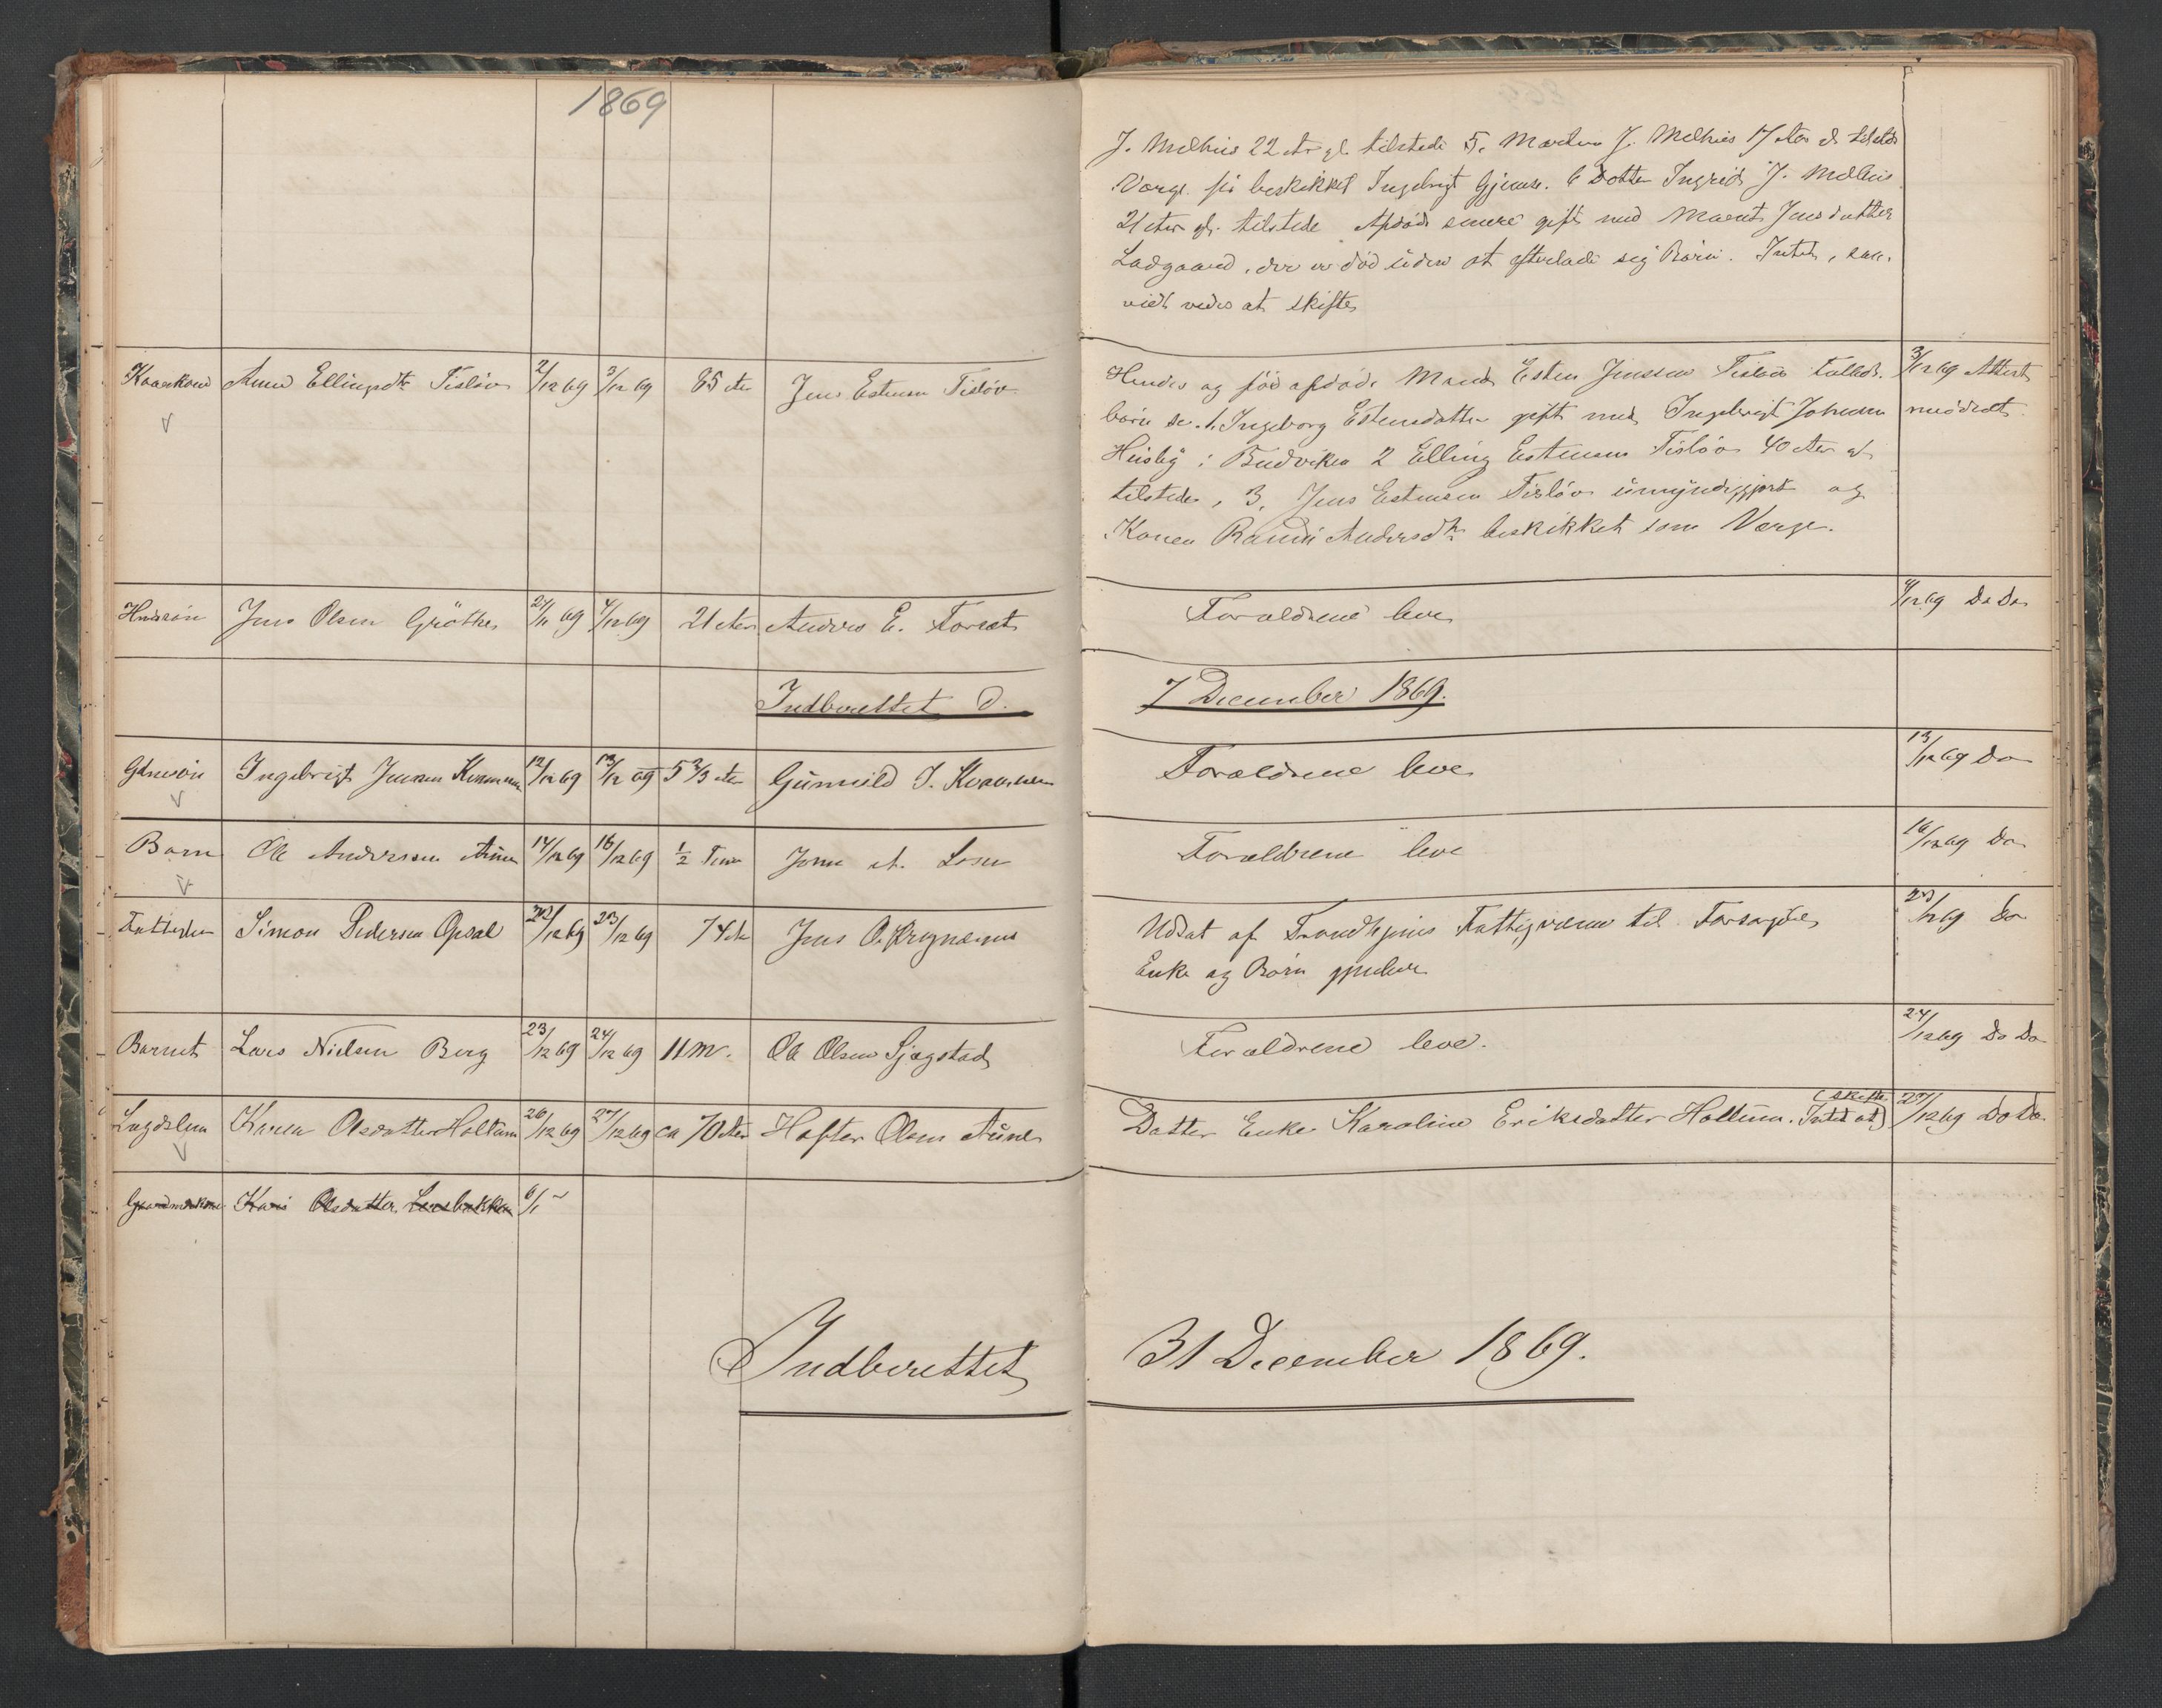 1869
J. Melhus 22 Aar gl. tilstede 5. Marten J. Melhus 17 Aar
Værge beskikket Ingebrigt 6 Datter Ingrid J. Melhus
21 Aar gl. tilstede Afdøde gift med Marit Jensdatter
Ladgaard, der er død uden at efterlade sig Børn. Intet, saa-
vidt vides at skifte
Kaarkone Anne Ellingsdtr Tisløv 2/12 69 3/12 69 85 Aar Jens Estensen Tisløv
Hendes og før afdøde Mand Esten Jensen Tisløv 3/12 69 Attest
børn 1. Ingeborg Estensdatter gift med Ingebrigt Johnsen meddelt
Huseby i Budviken 2 Elling Estensen Tisløv 40 Aar
tilstede, 3, Jens Estensen Tisløv umyndiggjort og
Konen Randi Andersdtr beskikket som Værge.
Jens Olsen Grøthe 27/11 69 4/12 69 21 Aar Anders E. Forset
Forældrene leve 4/12 69 Do Do
Indberettet d. 7 December 1869.
Ingebrigt Jensen Kvammen 12/12 69 13/12 69 5 2/3 Aar Gunnild J. Kvammen
Forældrene leve 13/12 69 Do
Barn Ole Andersen Aune 14/12 69 16/12 69 1/2 Time John A. Losen
Forældrene leve 16/12 69 Do
Simon Pedersen Opsal 20/12 69 23/12 69 74 Aar Jens O. Krynæmmo
Udsat af Trondhjems Fattigvæsen til Forsørgelse 23/12 69 Do
Enke og Børn gjenlever
Barnet Lars Nielsen Berg 23/12 69 24/12 69 11 M. Ole Olsen Sjøgstad
Forældrene leve. 24/12 69 Do Do
Lægdslem Karen Olsdatter Holtum 26/12 69 27/12 69 ca 70 Aar Hafter Olsen Aune
Datter Enke Karoline Eriksdatter Holtum. Intet at (skifte 27/12 69 Do Do.
Gaardmandskone Kari Olsdatter Loresbakken 6/1
Indberettet 31 December 1869.